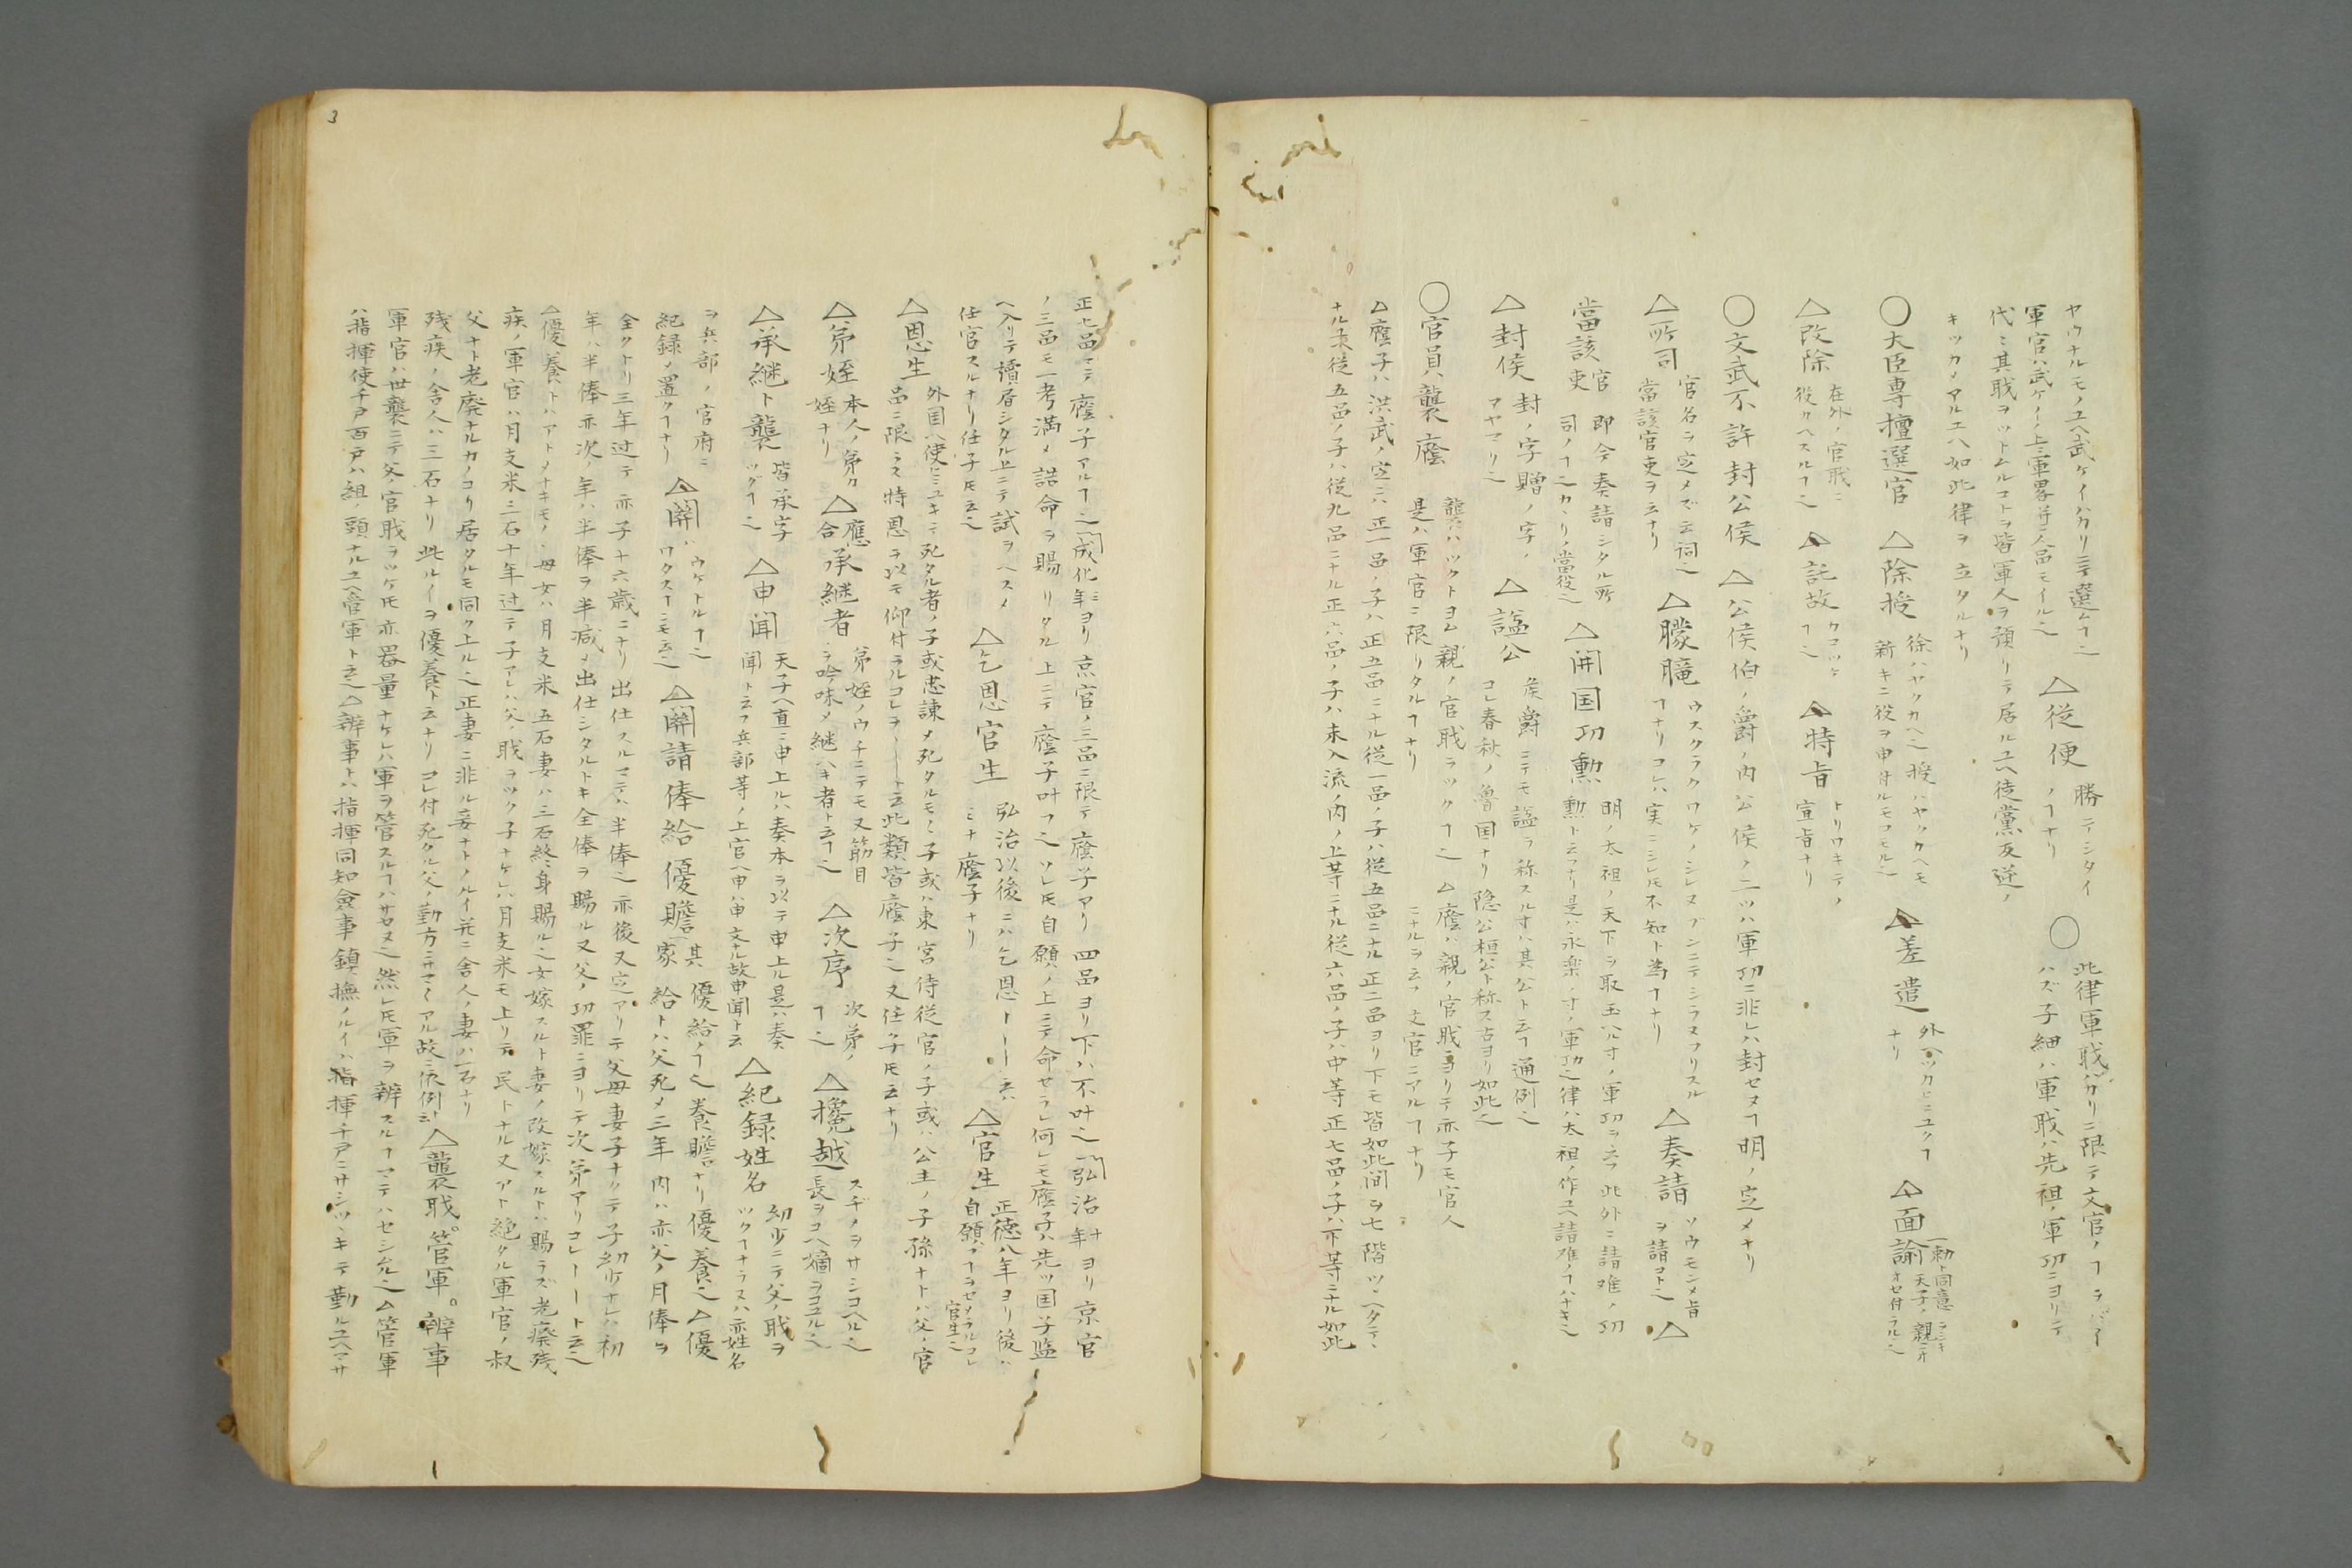 ヤウナルモノユヘ武ゲイハカリニテ選ムヿ也
△従便 勝テシタイ
ノヿナリ
○此律軍戝バカリニ限テ文官ノヿ
軍官ハ武ゲイノ上ニ軍畧并ニ人品モイル也
ハズ子細ハ軍戝ハ先祖ノ軍功ニヨリテ
代々其戝ヲツトムルコトヲ皆軍人ヲ預リテ居ルユヘ徒黨反逆ノ
キツカノアルユヘ如此律ヲ立タルナリ
○大臣専擅選官 △除授 徐ハヤクカヘ也授ハヤクカヘモ
新キニ役ヲ申付ルモコモル也
△差遣 外ヘツカヒニユクヿ
ナリ
△面諭 勅ト同意
天子ノ親
オセ付ラル也
△改除 在外ノ官戝ニ
役カヘスルヿ也
△託故 カコツケ
ヿ也
△特旨 トリワキテノ
宣旨ナリ
○文武不許封公侯 △公侯伯ノ爵ノ内公侯ノ二ツハ軍功ニ非レハ封セヌヿ明ノ定メナリ
△所司 官名ヲ定メズ云詞也
當該官吏ヲ云ナリ
△朦朧 ウスクラクワケノシレヌブンニテシラヌフリスル
ヿナリコレハ実ニシレ𪜈不知ト為ヿナリ
△奏請 ソウモンメ旨
ヲ請コト也
△
當該官吏 即今奏請シタル所
司ノヿ也カヽリノ當役也
△開国功勲 明ノ太祖ノ天下ヲ取玉ハル寸ノ軍功ヲ云フ此外ニ請难ノ功
勲ト云フナリ是ハ永楽ノ寸ノ軍功也律ハ太祖ノ作ユヘ請难ノヿハナキ也
△封侯 封ノ字贈ノ字ノ
マヤマリ也
△諡公 侯爵ニテモ諡ヲ称スル寸ハ其公ト云ヿ通例也
コレ春秋ノ魯国ナリ隠公桓公ト称ス古ヨリ如此也
○官員襲廕 襲ハツクトヨム親ノ官戝ヲツクヿ也
是ハ軍官ニ限リタルヿナリ
△廕ハ親ノ官戝ニヨリテ亦子モ官人
ニナルヲ云フ文官ニアルヿナリ
△廕子ハ洪武ノ定ニハ正一品ノ子ハ正五品ニナル従一品ノ子ハ従五品ニナル正二品ヨリ下モ皆如此間ヲ七階ツヽヘタテヽ
ナル末従五品ノ子ハ従九品ニナル正六品ノ子ハ未入流ノ内ノ上等ニナル従六品ノ子ハ中等正七品ノ子ハ下等ニナル如此
正七品マテ廕子アルヿ也成化年ヨリ京官ノ三品ニ限テ廕子アリ四品ヨリ下ハ不叶也弘治年ヨリ京官
ノ三品モ一考満メ誥命ヲ賜リタル上ニテ廕子叶フ也ソレ𪜈自願ノ上ニテ命セラレ何レモ廕子ハ先ツ国子監
ヘ入リテ讀居シタル上ニテ試ヲヘスメ
任官スルナリ任子𪜈云也
△乞恩官生 弘治以後ニハ乞恩ーー云ハ
ミナ廕子ナリ
△官生 正徳八年ヨリ後ハ
自願ノヿヲセメラルコレ
官生也
△恩生 外国ヘ使ニユキテ死タル者ノ子或忠諌メ死タルモノヽ子或ハ東宮侍従官ノ子或ハ公主ノ子孫ナトハ父ノ官
品ニ限ラス特恩ヲ以モ仰付ラルコレヲーート云此類皆廕子也又任子𪜈云ナリ
△弟姪 本人ノ弟カ
姪ナリ
△應合承継者 弟姪ノウチニテモ又筋目
ヲ吟味メ継ヘキ者ト云ヿ也
△次序 次第ノ
ヿ也
△攙越 スヂメヲサシコヘル也
長ヲコヘ嫡ヲコユル也
△承継ト襲 皆承字
ツグヿ也
△申聞 天子ヘ直ニ申上ルハ奏本ヲ以テ申上ル是ハ奏
聞ト云フ兵部等ノ上官ヘ申ハ申文ナル故申聞ト云
△紀録姓名 幼少ニテ父ノ戝ヲ
ツクヿナラスハ亦姓名
ヲ兵部ノ官府ニ
紀録メ置クヿナリ
△関ハウケトルヿ也
ワタスヿニモ云也
△関請俸給優贍其家 優給ノヿ也養贍ナリ優養也△優
給トハ父死メ三年内ハ亦父ノ月俸ヲ
全クトリ三年过テ亦子十六歳ニナリ出仕スルマテハ半俸也亦後又定アリテ父母妻子ナクテ子幼少ナレハ初
年ハ半俸亦次ノ年ハ半俸ヲ半减メ出仕シタルトキ全俸ヲ賜ル又父ノ功罪ニヨリテ次第アリコレーート云也
△優養トハアトメナキモノヽ母女ハ月支米五石妻ハ三石終身賜ル也女嫁スルト妻ノ改嫁ノルトハ賜ラズ老癈残
疾ノ軍官ハ月支米三石十年过テ子アレハ父ノ戝ヲツク子ナケレハ月支米モ上リテ民トナル又アト絶タル軍官ノ叔
父ナト老廃ナルカノコリ居タルモ同ク上ル也正妻ニ非ル妾ナトノルイ并ニ舎人ノ妻ハ一石ナリ
残疾ノ舎人ハ三石ナリ此ルイヲ優養ト云ナリコレ付死タル父ノ勤方ニサマ〳〵アル故ニ依例云
△襲戝。管軍。辨事
軍官ハ世襲ニテ父ノ官戝ヲツケ𪜈亦器量ナケレハ軍ヲ管スルヿハサセヌ也然レ𪜈軍ヲ辨スルヿマテハセシムル也△管軍
ハ指揮使千戸百戸ハ組ノ頭ナルユヘ管軍ト云也△辨事トハ指揮同知僉事鎮撫ノルイハ指揮千戸ニサシツヽキテ勤ルユヘマサ